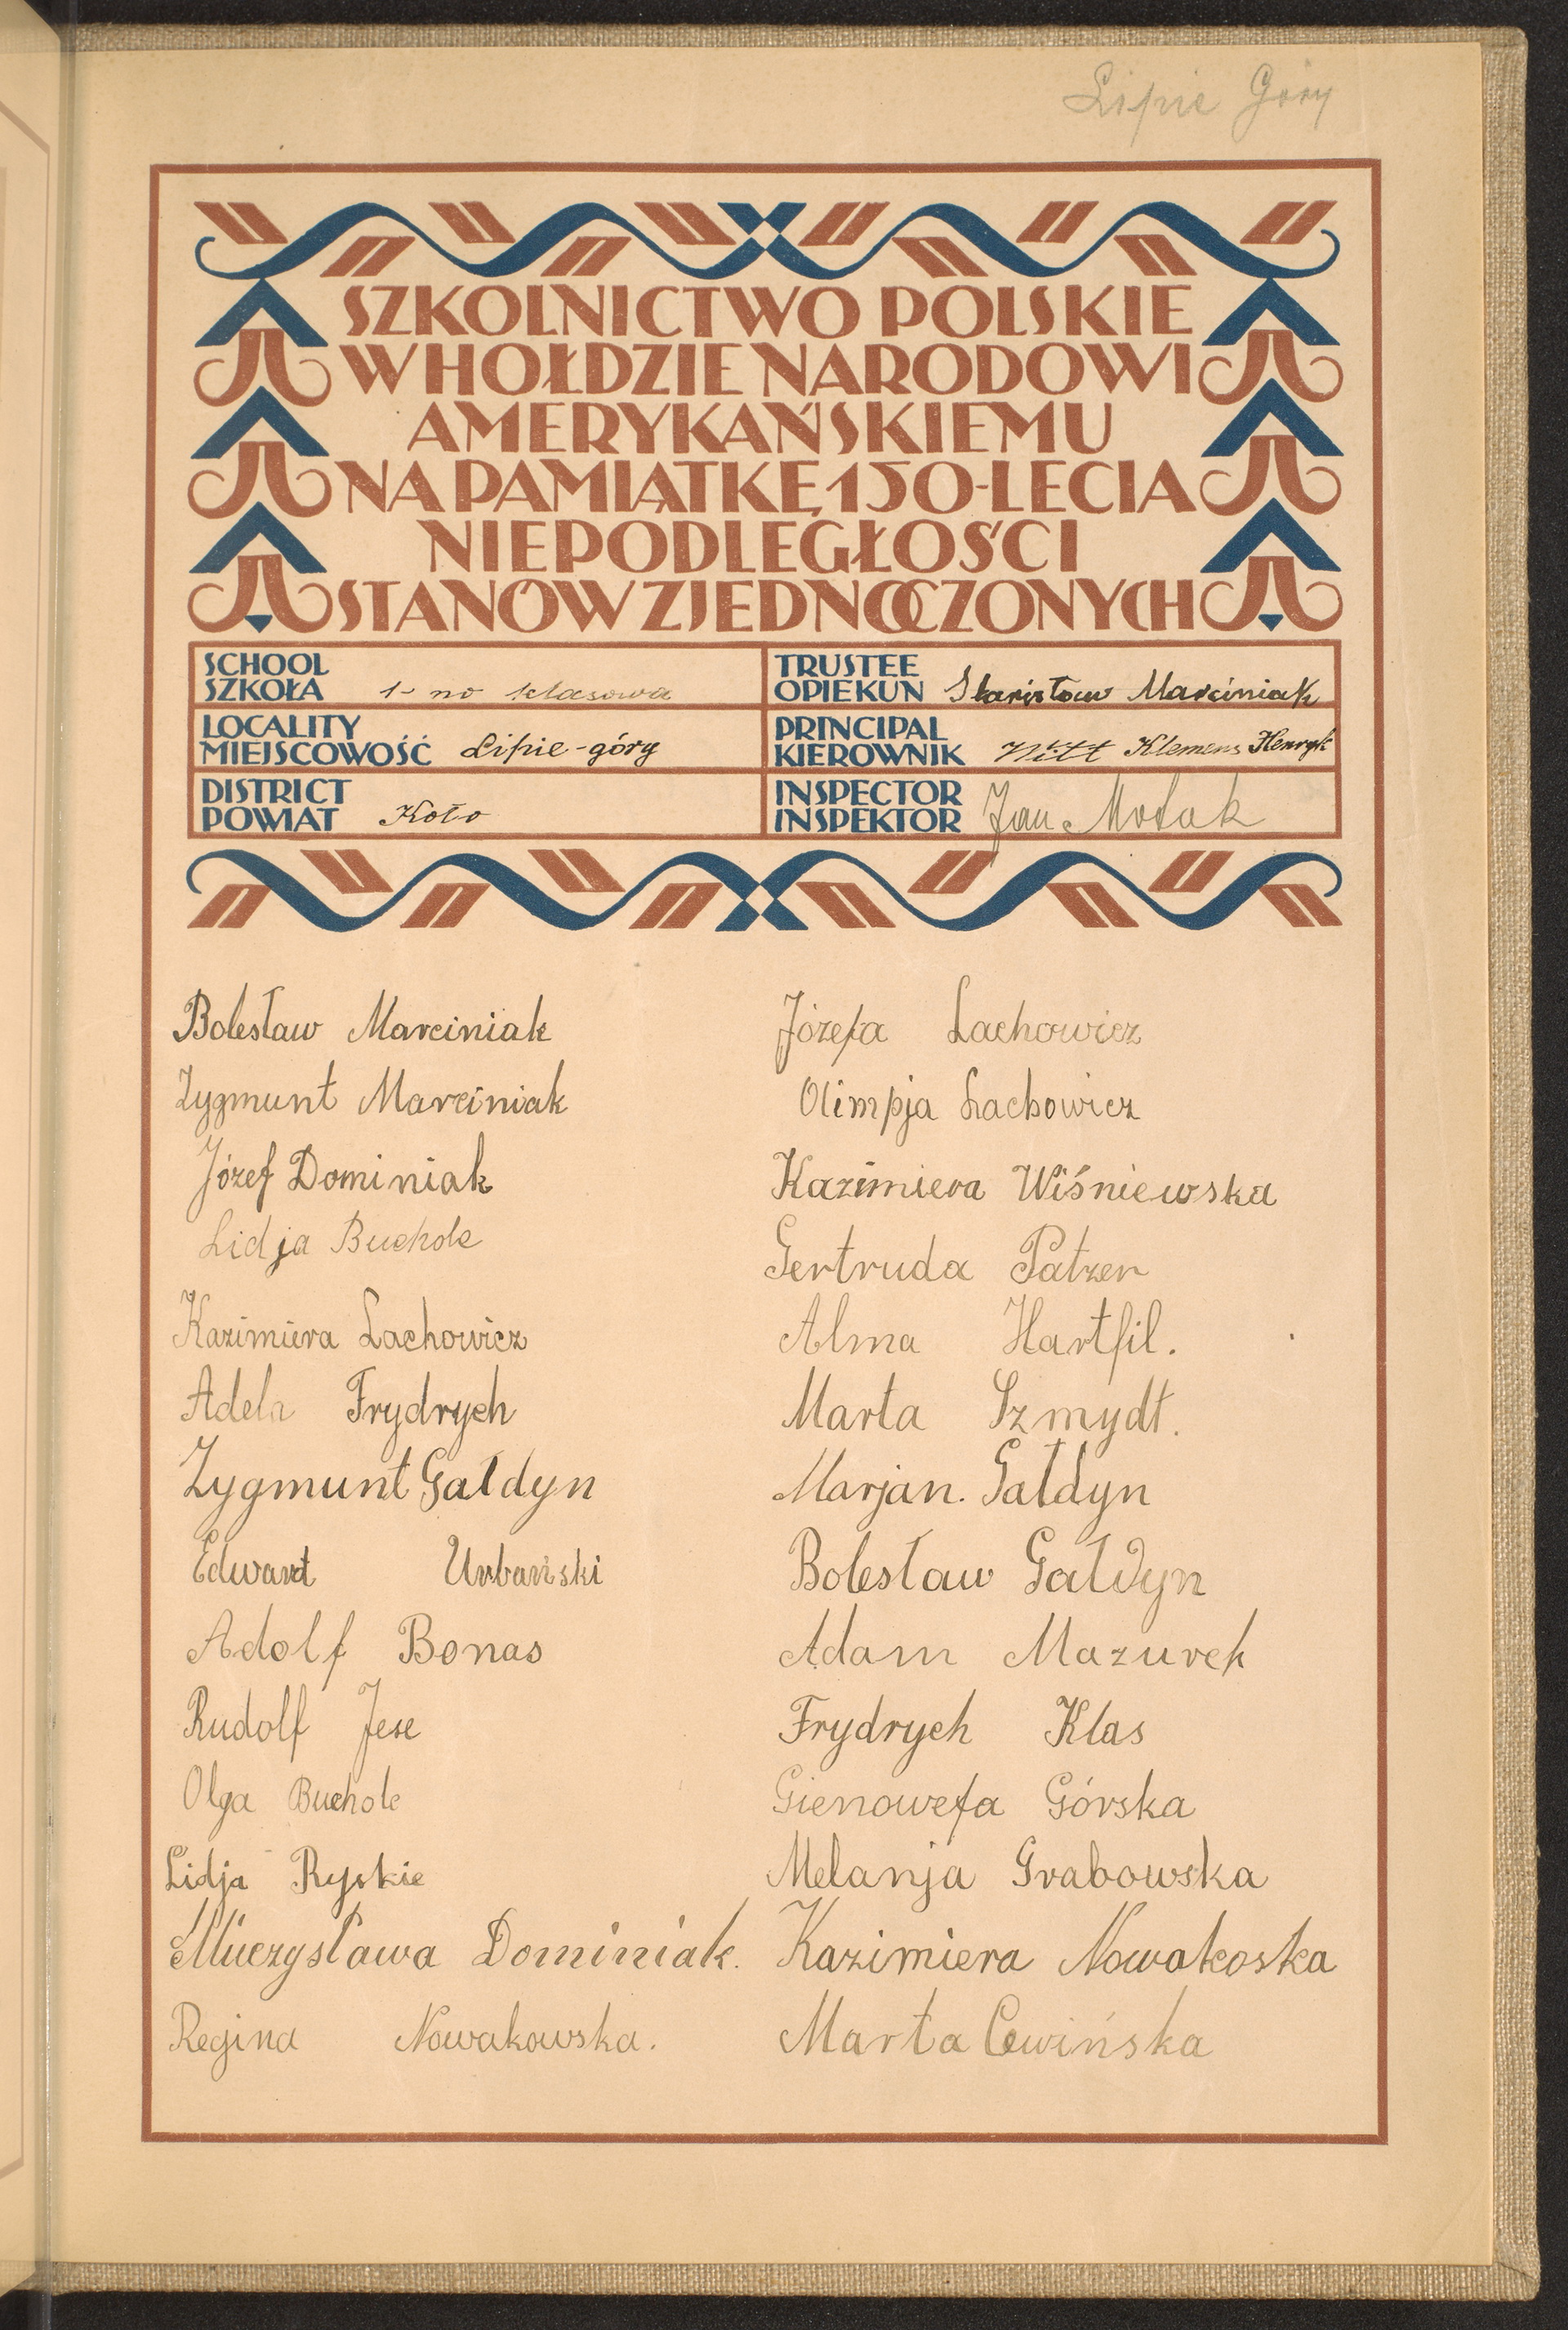 Lipie Góry
SZKOLNICTWO POLSKIE
W HOŁDZIE NARODOWI
AMERYKAŃSKIEMU
NA PAMIĄTKĘ 150-LECIA
NIEPODLEGŁOŚCI
STANÓW ZJEDNOCZONYCH
SCHOOL
SZKOŁA 1-no klasowa
TRUSTEE
OPIEKUN Stanisław Marciniak
LOCALITY
MIEJSCOWOŚĆ Lipie-góry
PRINCIPAL
KIEROWNIK Nitt Klemens Henryk
DISTRICT
POWIAT Koło
INSPECTOR
INSPEKTOR Jan
Bolesław Marciniak
Zygmunt Marciniak
Józef Dominiak
Lidja Bucholc
Kazimiera Lachowicz
Adela Frydrych
Zygmunt Gałdyn
Edward Urbański
Adolf Bonas
Rudolf Jese
Olga Bucholc
Lidja Ryskie
Mieczysława Dominiak.
Regina Nowakowska.
Józefa Lachowicz
Olimpja Lachowicz
Kazimiera Wiśniewska
Gertruda Patzer
Alma Hartfil.
Marta Szmydt.
Marjan. Gałdyn
Bolesław Gałdyn
Adam Mazurek
Frydrych Klas
Gienowefa Górska
Melanja Grabowska
Kazimiera Nowakoska
Marta Cewińska